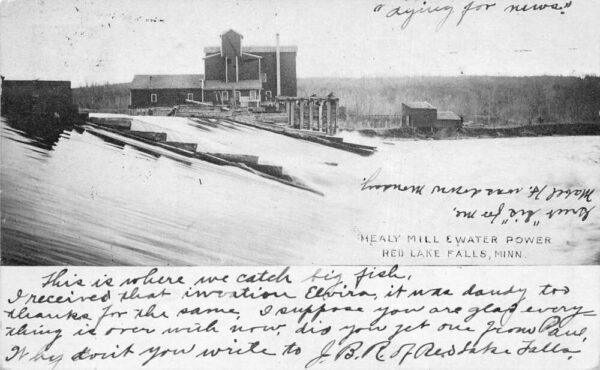 "dying for news."
Mabel H. was down Monday
"Kid" for me.
HEALY MILL & WATER POWER
RED LAKE FALLS, MINN.
This is where we catch big fish.
I received that invation Elvira, it was dandy too
thanks for the same, I suppose you are glad every-
thing is over with now, did you get one from Paul,
Why don't you write to J.B.R. of Red Lake Falls.